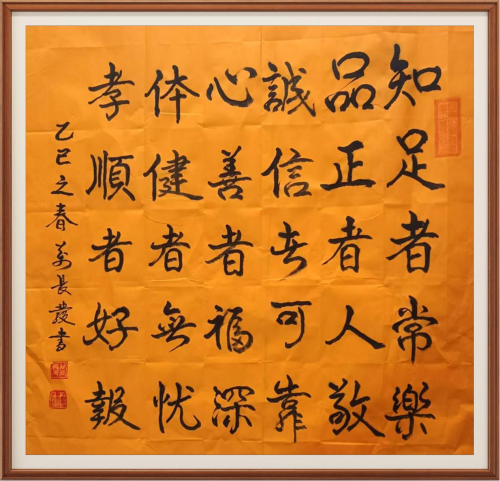 知足者常樂
品正者人敬
誠信者可靠
心善者福深
体健者無忧
孝順者好報
乙巳之春萬長發書